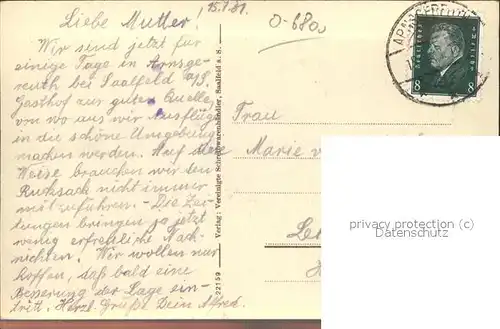 15.7.31.
O-6800
Liebe Mutter!
Wir sind jetzt für
einige Tage in Arnsge-
reuth bei Saalfeld a/S.
Gasthof zur guten Quelle,
von wo aus wir Ausflüge
in die schöne Umgebung
machen werden. Auf diese
Weise brauchen wir den
Rucksack nicht immer
mitzuführen. - Die Zei-
tungen bringen ja jetzt
wenig erfreuliche Nach-
richten. Wir wollen nur
hoffen, daß bald eine
Besserung der Lage ein-
tritt. Herzl. Grüße Dein Alfred.
22159 Verlag: Vereinigte Schreibwarenhändler, Saalfeld a. S.
8 8
Frau
Marie v
privacy protection